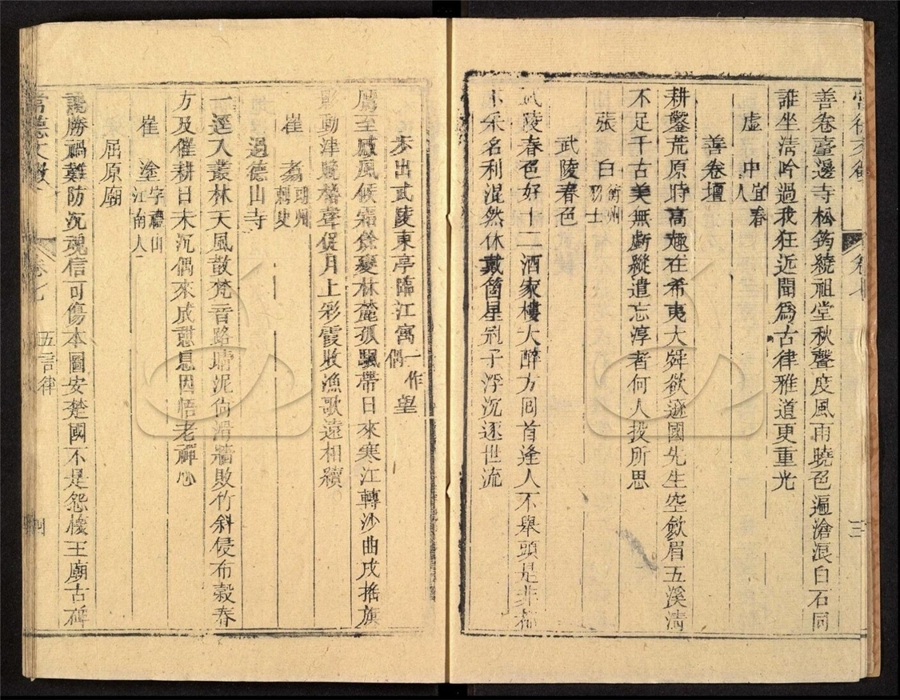 卷七 三
善卷臺邊寺松筠繞祖堂秋聲度風雨曉色遍滄浪白石同
誰坐清吟過我狂近聞爲古律雅道更重光
虛中宜春人
善卷壇
耕鑿荒原時高趣在希夷大舜欲遜國先生空斂眉五溪清
不足千古美無虧縱遣忘淳者何人投所思
張白衡州士
武陵春色
武陵春色好十二酒家樓大醉方回首逢人不舉頭是非都
不采名利混然休戴箇星冠子浮沉逐世流
步出武陵東亭臨江寓偶一作望
鴈至感風候霜餘變林麓孤颿帶日來寒江轉沙曲戍搖旗
影動津晚櫓聲促月上彩霞收漁歌遠相續
崔翥州刺史
過德山寺
一逕入叢林天風散梵音路晴泥尚滑牆敗竹斜侵布穀春
方及催耕日未沉偶來成憩息因悟老禪心
崔塗字禮山江南人
屈原廟
讒勝禍難防沉魂信可傷本圖安楚國不是怨懷王廟古碑
常德文徵 卷七 五言律 四